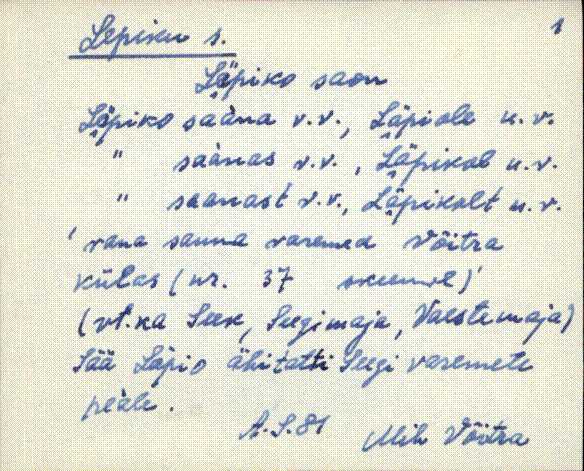 1
Lepiku s.
Lä̬piko saon
Lä̬piko saàna v.v., Lä̬piole u.v.
" saànas v.v., Lä̬pikol u.v.
" saanast v.v., Lä̬pikolt u.v.
'vana sauna varemed Võitra
külas (nr. 37 skeemil)'
(vt. ka Seek, Seegimaja, Vaestemaja)
Sää Läpio ähitatti Seegi varemete
peàle.
A.S.81 Mih Võitra